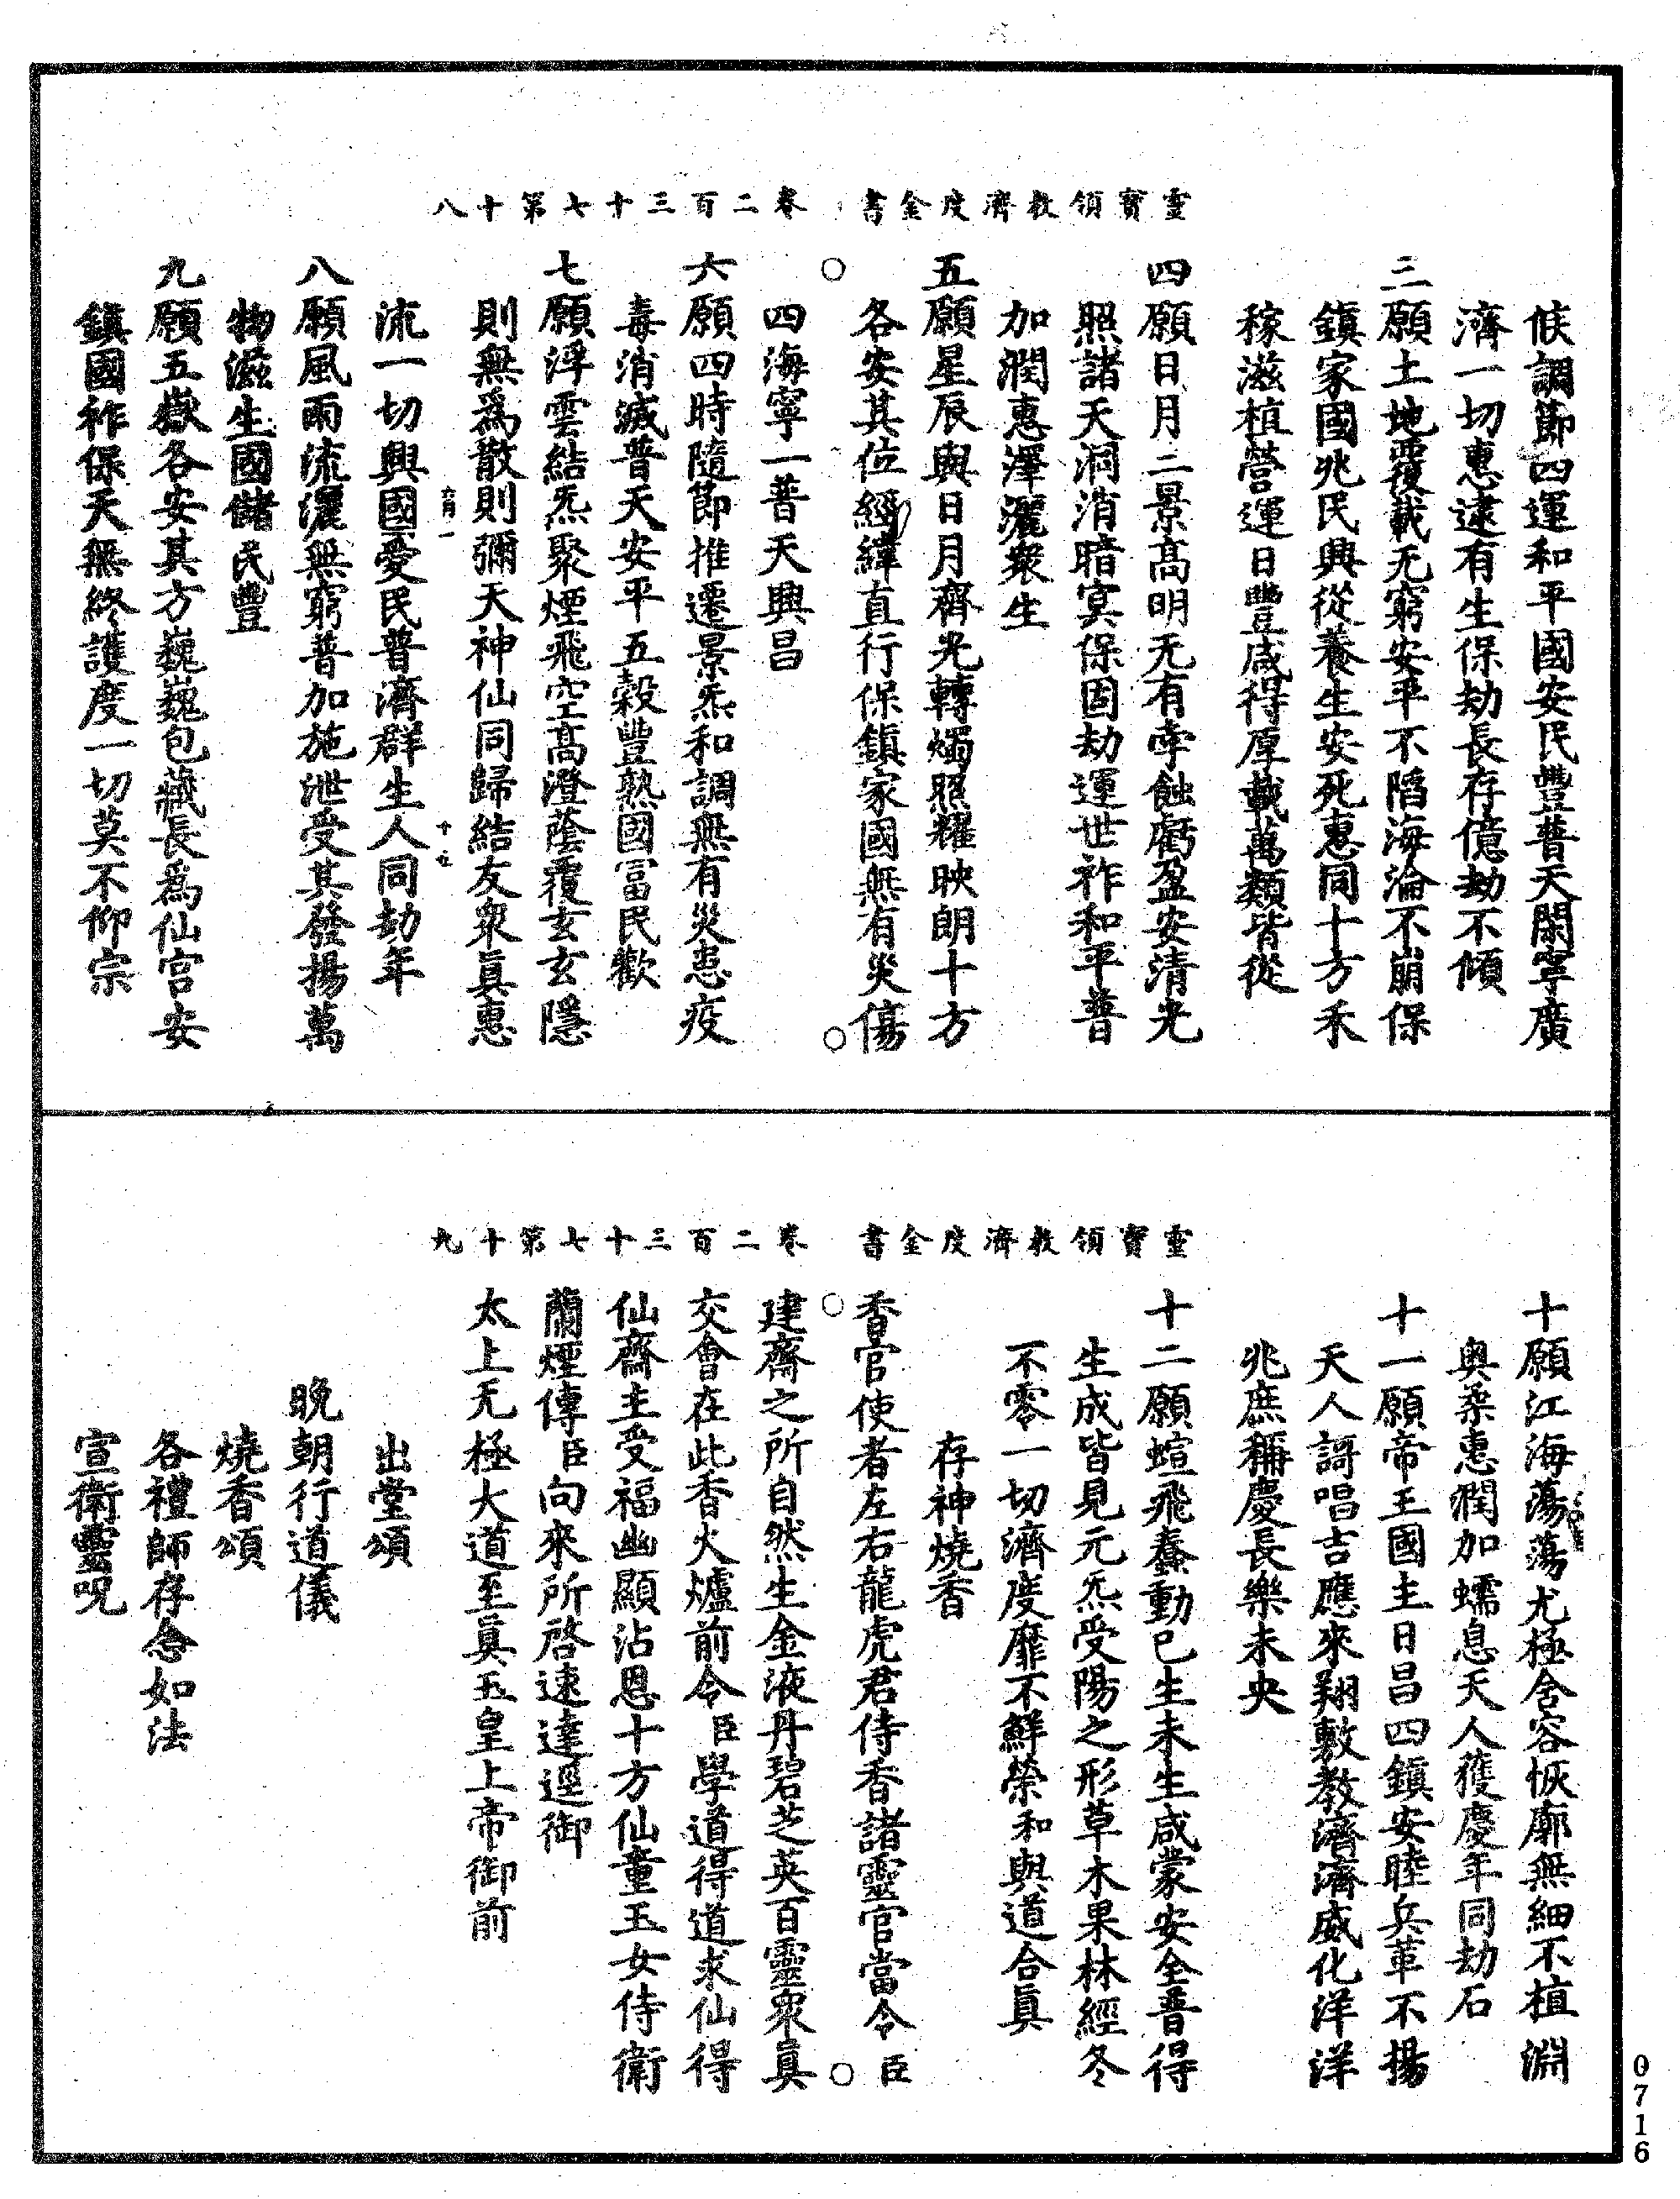 靈寶領教濟度金書　卷二百三十七第十八
候調節四運和平國安民豐普天閑寧廣
濟一切惠逮有生保劫長存億劫不傾
三願土地覆載无窮安平不陷海淪不崩保
鎮家國兆民興從養生安死惠同十方禾
稼滋植營運日豐咸得厚載萬類皆從
四願日月二景高明无有虧蝕虧盈安清光
照諸天洞消暗冥保固劫運世祚和平普
加潤惠澤灑衆生
五願星辰與日月齊光轉燭照耀映朗十方
各安其位經緯直行保鎮家國無有災傷
四海寧一普天興昌
六願四時隨節推遷景炁和調無有災患疫
毒消滅普天安平五穀豐熟國富民歡
七願浮雲結炁聚煙飛空高澄蔭覆玄玄隱
則無爲散則彌天神仙同歸結友衆眞惠
流一切興國愛民普濟群生人同劫年
八願風雨流灑無窮普加施泄受其發揚萬
物滋生國儲民豐
九願五嶽各安其方巍巍包藏長爲仙宮安
鎮國祚保天無終護度一切莫不仰宗
靈寶領教濟度金書　卷二百三十七第十九
十願江海蕩蕩尤極含容恢廓無細不植淵
奥柔惠潤加蠕息天人獲慶年同劫石
十一願帝王國主日昌四鎮安睦兵革不揚
天人謌唱吉應來翔敷教濟濟威化洋洋
兆庶稱慶長樂未央
十二願蝖飛蠢動已生未生咸蒙安全普得
生成皆見元炁受陽之形草木果林經冬
不零一切濟度靡不鮮榮和與道合眞
存神燒香
香官使者左右龍虎君侍香諸靈官當令臣
建齋之所自然生金液丹碧芝英百靈衆眞
交會在此香火爐前令臣學道得道求仙得
仙齋主受福幽顯沾恩十方仙童玉女侍衛
蘭煙傳臣向來所啓速達逕御
太上无極大道至眞玉皇上帝御前
出堂頌
晚朝行道儀
燒香頌
各禮師存念如法
宣衛靈呪
0716